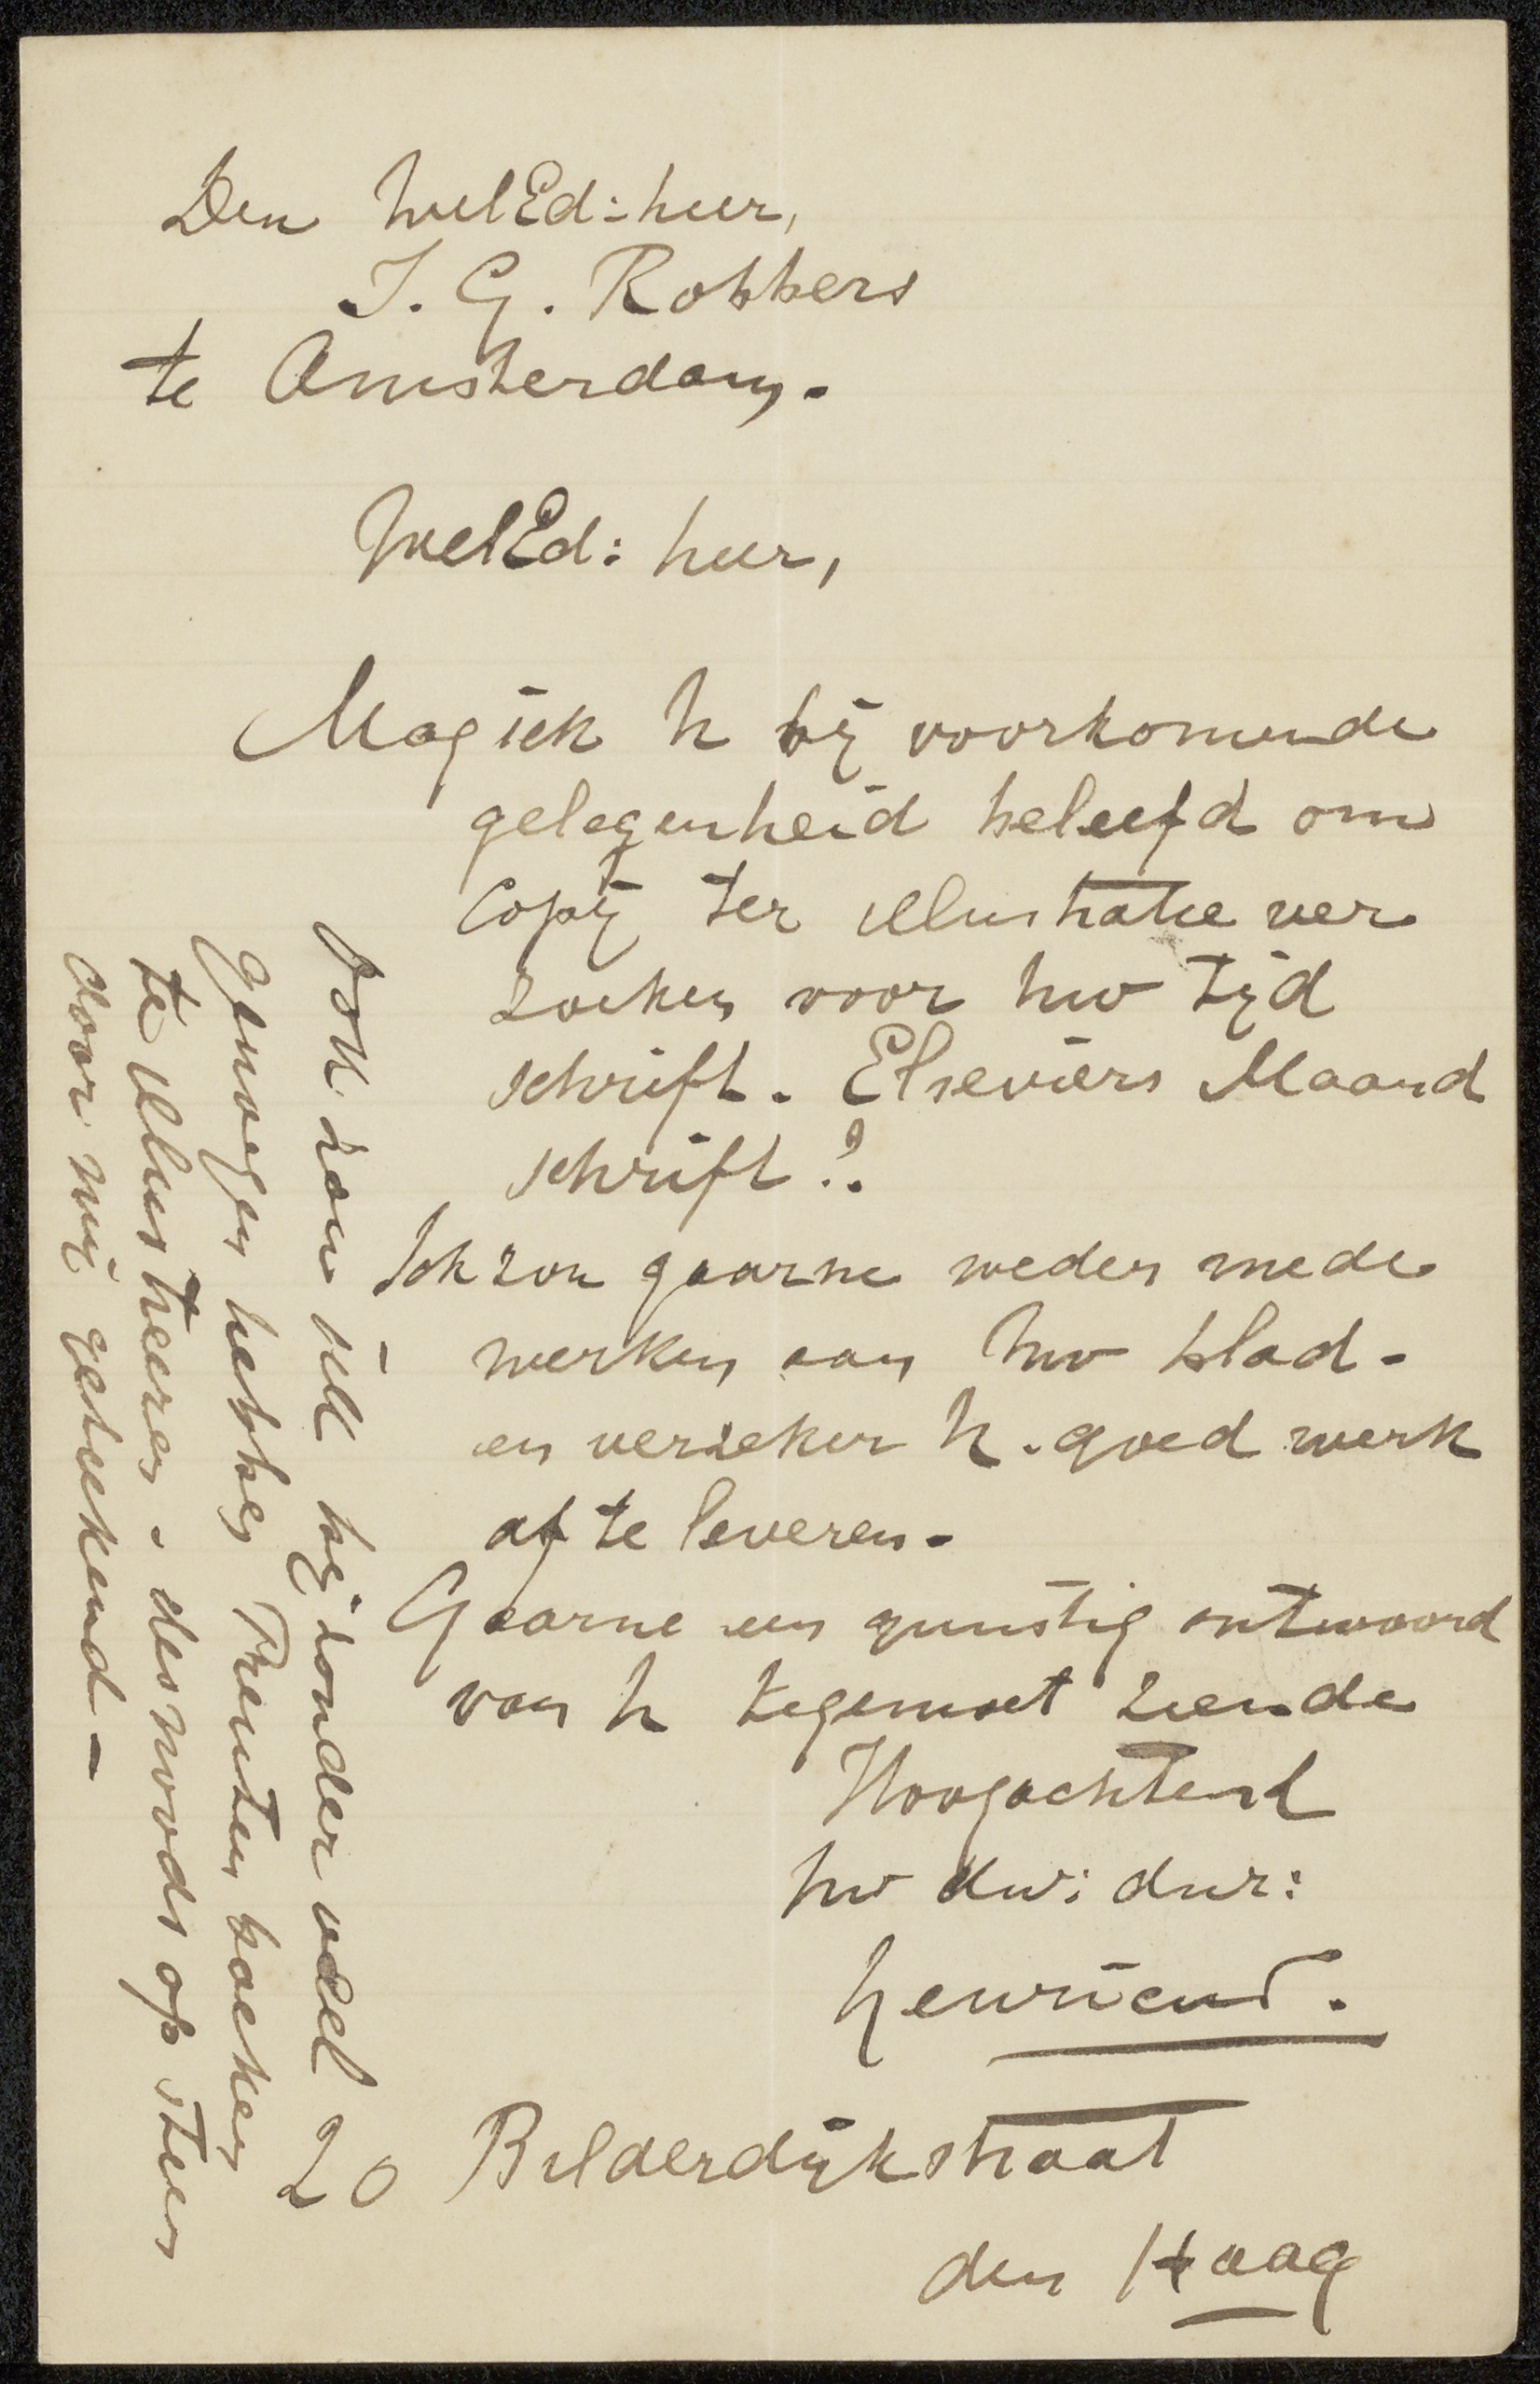 Den WelEd: heer,
J. G. Robbers
te Amsterdam.
WelEd: heer,
Mag ick U bij voorkomende
gelegenheid beleefd om
Copij ter illustratie ver
zoeken voor Uw tijd
schrift. Elseviers Maand
schrift!.
Ick zou gaarne weder mede
werken aan Uw blad -
en verzeker U. goed werk
af te leveren -
Gaarne een gunstig antwoord
van U tegemoet ziende
Hoogachtend
Uw dw: dnr:
Henricus.
20 Bilderdijkstraat
den Haag
Ook zou ick bijzonder veel
genoegen hebben Prentenboeken
te illustreeren - desnoods op steen
door mij geteekend -